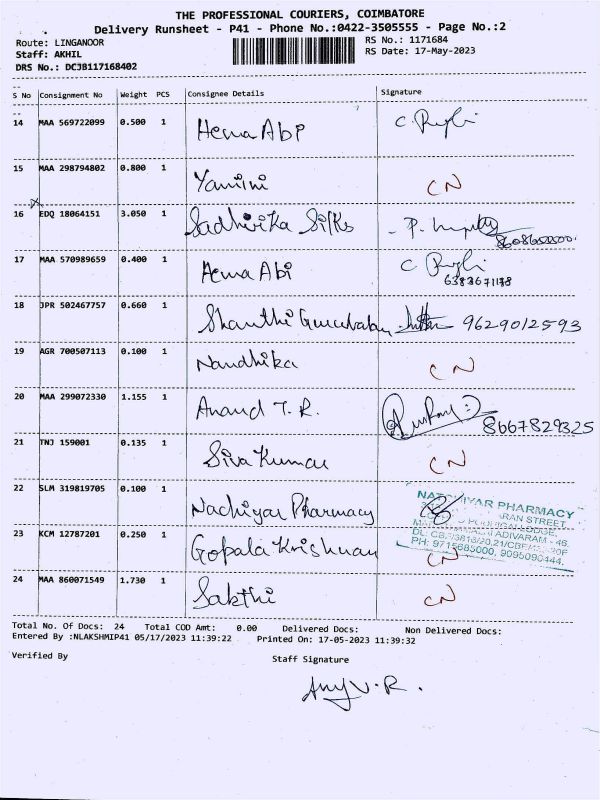 THE PROFESSIONAL COURIERS, COIMBATORE
Delivery Runsheet - P41 - Phone No.:0422-3505555 - Page No.:2
Route: LINGANOOR
RS No.: 1171684
Staff: AKHIL
RS Date: 17-May-2023
DRS No.: DCJB117168402
S No Consignment No Weight PCS Consignee Details Signature
14 MAA 569722099 0.500 1 Hema Abi C.
15 MAA 298794802 0.800 1 Yamini CN
16 EDQ 18064151 3.050 1 Sadhvika Silks P.
17 MAA 570989659 0.400 1 Hema Abi C
6383671178
18 JPR 502467757 0.660 1 Shanthi 9629012593
19 AGR 700507113 0.100 1 Nandhika CN
20 MAA 299072330 1.155 1 Anand T.R. 8667829325
21 TNJ 159001 0.135 1 Siva Kumar CN
22 SLM 319819705 0.100 1 Nachiyar Pharmacy
PHARMACY
STREET,
ADIVARAM - 46.
PH: 9715685000, 9095090444.
23 KCM 12787201 0.250 1 Gopala Krishnan CN
24 MAA 860071549 1.730 1 Sakthi CN
Total No. Of Docs: 24 Total COD Amt: 0.00 Delivered Docs: Non Delivered Docs:
Entered By :NLAKSHMIP41 05/17/2023 11:39:22 Printed On: 17-05-2023 11:39:32
Verified By Staff Signature